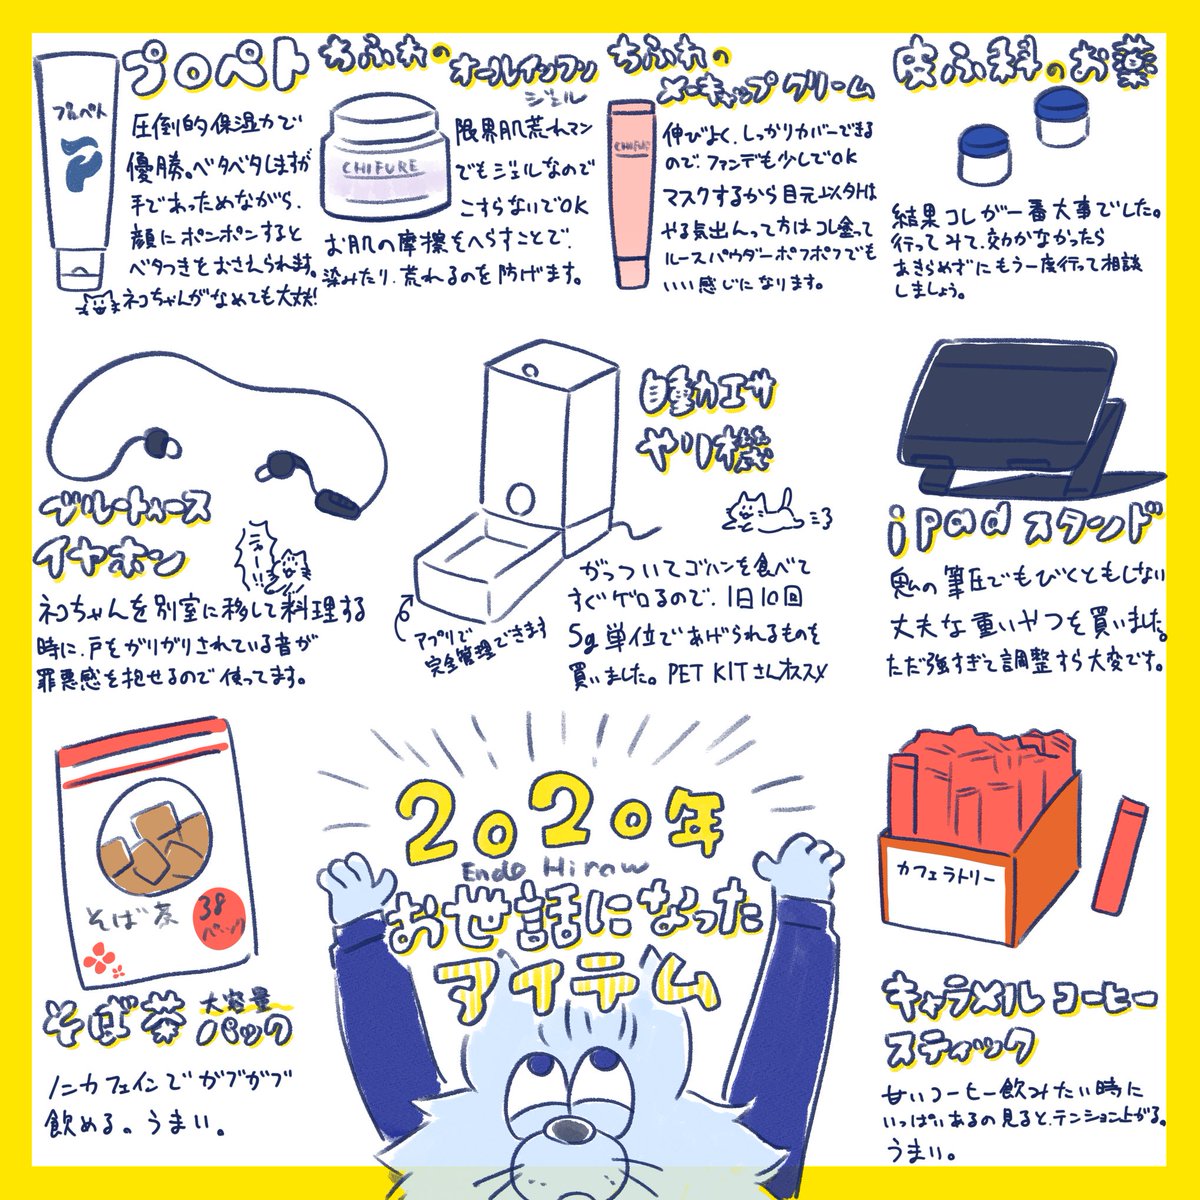 プロペト
プロペト
圧倒的保湿力で
優勝。ベタベタしますが
手であっためながら、
顔にポンポンすると
ベタつきをおさえられます。
ネコちゃんがなめても大丈夫!
ちふれの
オールインワン
ジェル
CHIFURE
限界肌荒れマン
でもジェルなので
こすらないでOK
お肌の摩擦をへらすことで、
染みたり、荒れるのを防げます。
ちふれの
メーキャップ クリーム
CHIFURE
伸びよく、しっかりカバーできる
ので、ファンデも少しでOK
マスクするから目元以外は
やる気出んって方はコレ塗って
ルースパウダーポフポフでも
いい感じになります。
皮ふ科のお薬
結果コレが一番大事でした。
行ってみて、効かなかったら
あきらめずにもう一度行って相談
しましょう。
ブルートゥース
イヤホン
ニャー!!
ネコちゃんを別室に移して料理する
時に、戸をガリガリされている音が
罪悪感を抱せるので使ってます。
自動エサ
やり機
アプリで
完全管理できます
がっついてゴハンを食べて
すぐゲロるので、1日10回
5g単位であげられるものを
買いました。PET KITさんオススメ
ipadスタンド
私の筆圧でもびくともしない
大丈夫な重いやつを買いました。
ただ強すぎて調整すら大変です。
そば茶
38
パック
そば茶 大容量
パック
ノンカフェインでガブガブ
飲める。うまい。
2020年
Endo Hiraw
お世話になった
アイテム
カフェラトリー
キャラメルコーヒー
スティック
甘いコーヒー飲みたい時に
いっぱいあるの見ると、テンション上がる。
うまい。